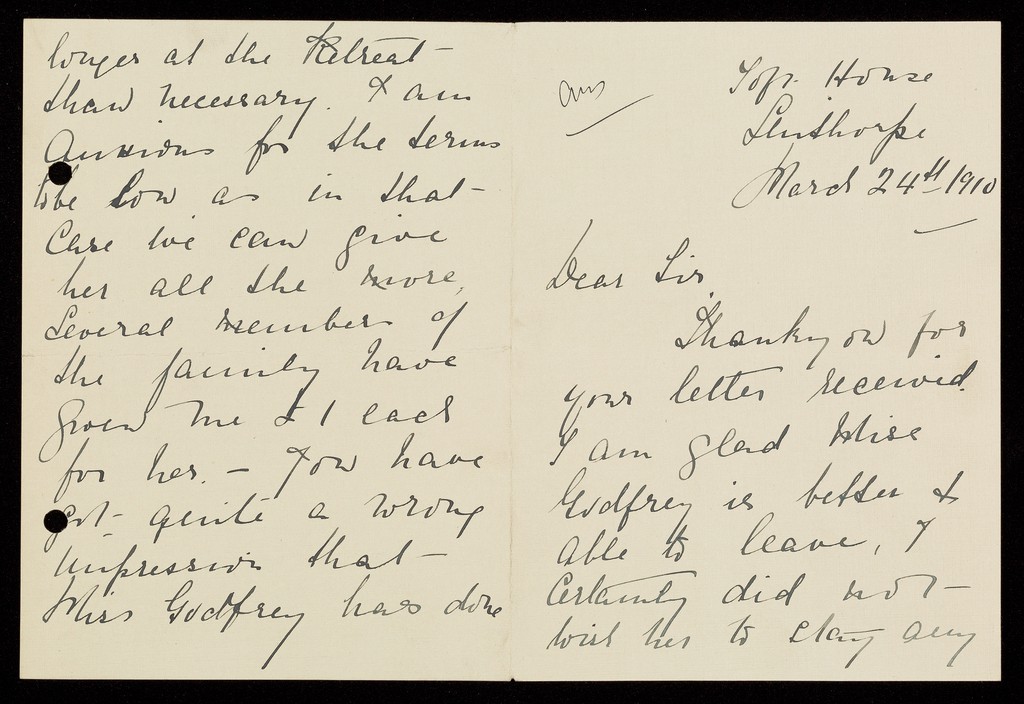 ans
Top. House
Linthorpe
March 24th 1910
Dear Sir,
Thankyou for
your letter received.
I am glad Miss
Godfrey is better &
able to leave, I
Certainly did not
wish her to stay any
longer at the Retreat
than necessary. I am
Anxious for the terms
to be low as in that
Case we can give
her all the more,
Several members of
the family have
given me £1 each
for her. - You have
got quite a wrong
impression that
Miss Godfrey has done